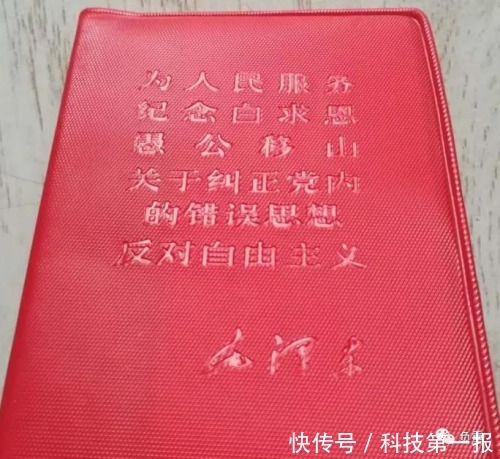 为人民服务
纪念白求恩
愚公移山
关于纠正党内
的错误思想
反对自由主义
毛泽东
快传号 / 科技第一报